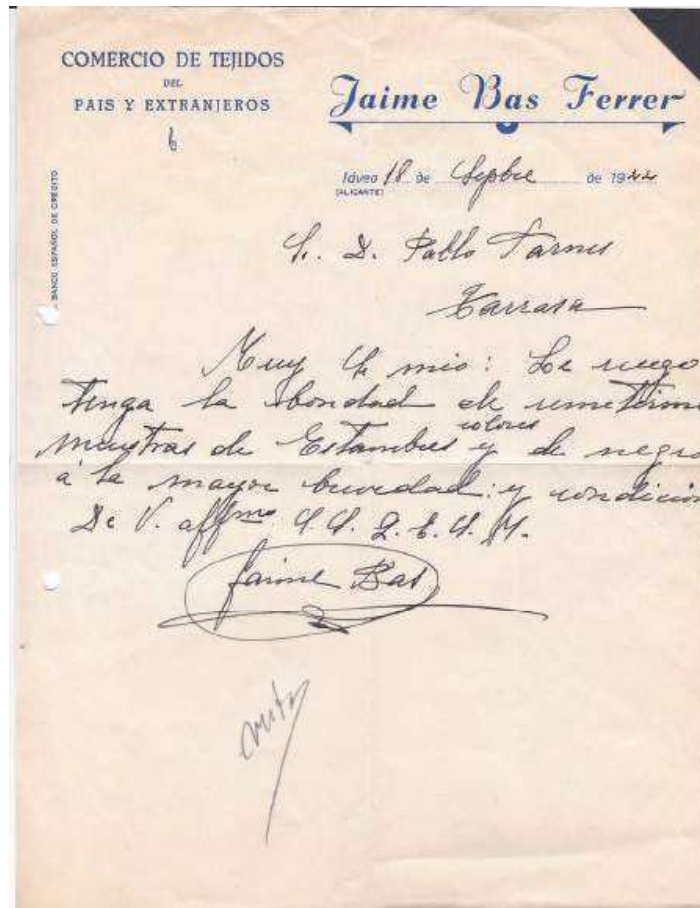 COMERCIO DE TEJIDOS
DEL
PAIS Y EXTRANJEROS
Jaime Bas Ferrer
BANCO ESPAÑOL DE CRÉDITO
Jávea 18 de Sepbre de 1944
(ALICANTE)
S. D. Pablo Farnes
Tarrasa
Muy S. mio: Le ruego
tenga la bondad de remetirme
muestras de Estambres colores y de negro
á la mayor brevedad: y condicion
De V. affmo. S. S. Q. E. S. M.
Jaime Bas